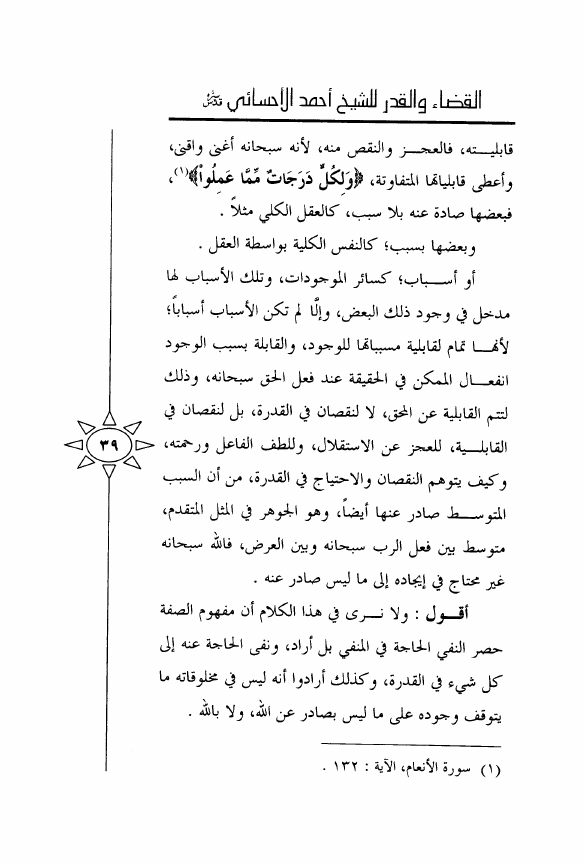 القضاء والقدر للشيخ أحمد الأحسائي
قابليـــته، فالعجـــز والنقص منه، لأنه سبحانه أغنى واقنى،
وأعطى قابلياتها المتفاوتة، ﴿وَلِكُلٍّ دَرَجَاتٌ مِّمَّا عَمِلُواْ﴾(١)،
فبعضها صادة عنه بلا سبب، كالعقل الكلي مثلاً .
وبعضها بسبب؛ كالنفس الكلية بواسطة العقل .
أو أســـباب؛ كسائر الموجودات، وتلك الأسباب لها
مدخل في وجود ذلك البعض، وإلَّا لم تكن الأسباب أسباباً؛
لأنهـــا تمام لقابلية مسبباتها للوجود، والقابلة بسبب الوجود
انفعـــال الممكن في الحقيقة عند فعل الحق سبحانه، وذلك
لتتم القابلية عن المحق، لا لنقصان في القدرة، بل لنقصان في
القابلـــية، للعجز عن الاستقلال، وللطف الفاعل ورحمته،
وكيف يتوهم النقصان والاحتياج في القدرة، من أن السبب
المتوســـط صادر عنها أيضاً، وهو الجوهر في المثل المتقدم،
متوسط بين فعل الرب سبحانه وبين العرض، فالله سبحانه
غير محتاج في إيجاده إلى ما ليس صادر عنه .
أقـــول : ولا نـــرى في هذا الكلام أن مفهوم الصفة
حصر النفي الحاجة في المنفي بل أراد، ونفى الحاجة عنه إلى
كل شيء في القدرة، وكذلك أرادوا أنه ليس في مخلوقاته ما
يتوقف وجوده على ما ليس بصادر عن الله، ولا بالله .
٣٩
(١) سورة الأنعام، الآية : ١٣٢ .